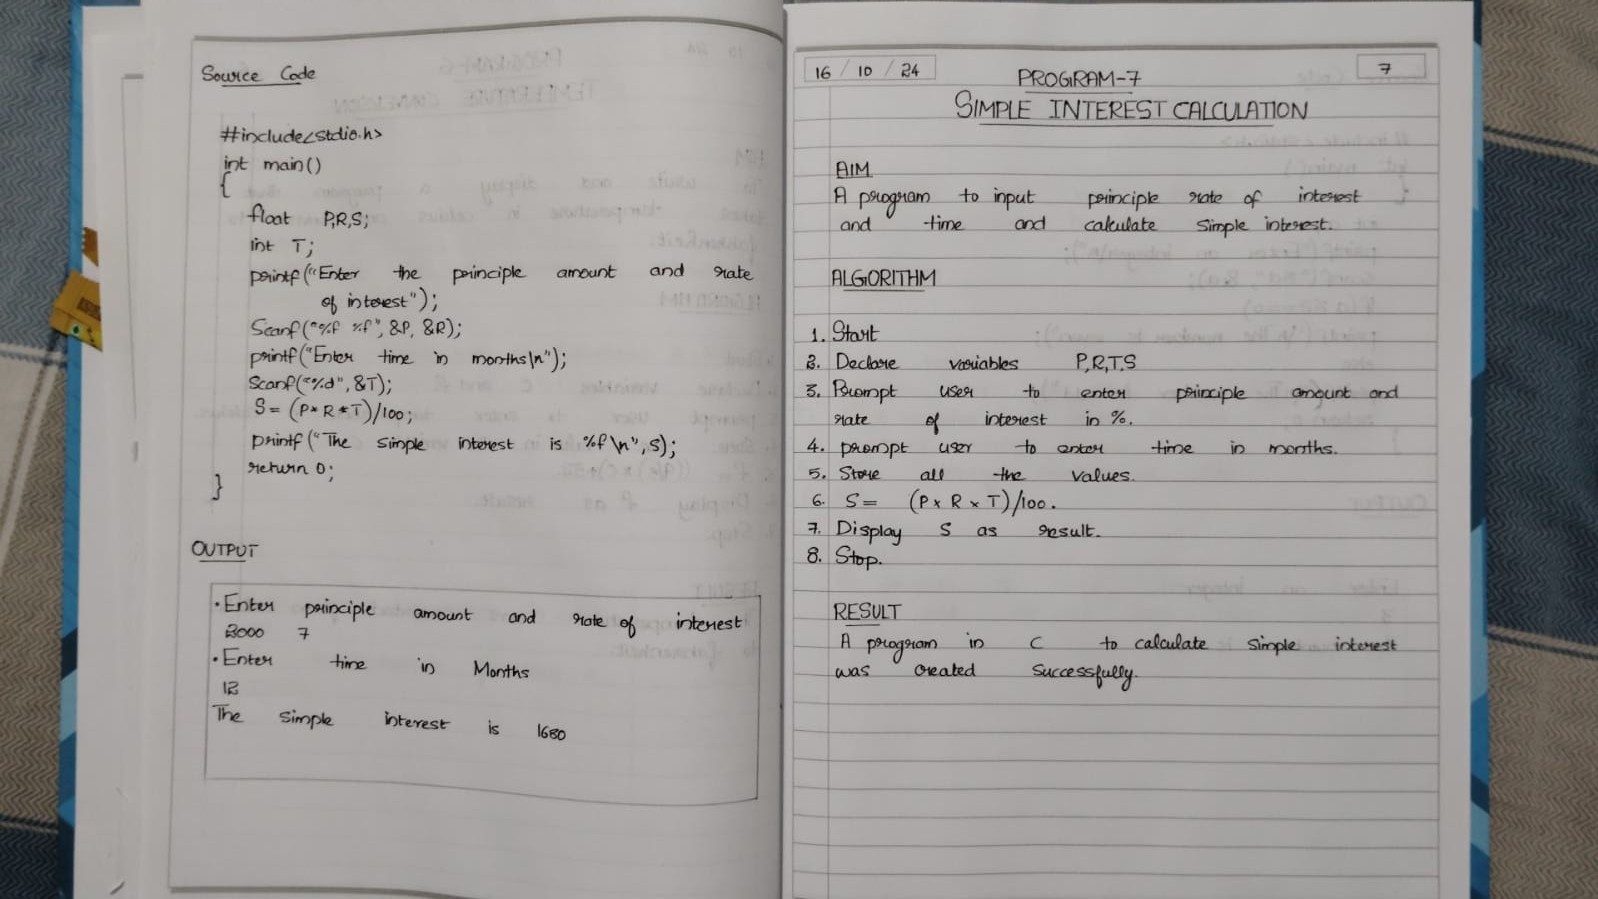 Source Code
#include<stdio.h>
int main()
{
float P,R,S;
int T;
printf("Enter the principle amount and rate
of interest");
Scanf("%f %f", &P, &R);
printf("Enter time in months\n");
Scanf("%d", &T);
S= (P* R*T)/100;
printf("The simple interest is %f \n", S);
return 0;
}
OUTPUT
• Enter principle amount and rate of interest
2000 7
• Enter time in Months
12
The simple interest is 1680
16 / 10 / 24
7
PROGRAM-7
SIMPLE INTEREST CALCULATION
AIM
A program to input principle rate of interest
and time and calculate Simple interest.
ALGORITHM
1. Start
2. Declare variables P,R,T,S
3. Prompt user to enter principle amount and
rate of interest in %.
4. prompt user to enter time in months.
5. Store all the values.
6. S= (P x R x T)/100.
7. Display S as result.
8. Stop.
RESULT
A program in C to calculate simple interest
was created Successfully.